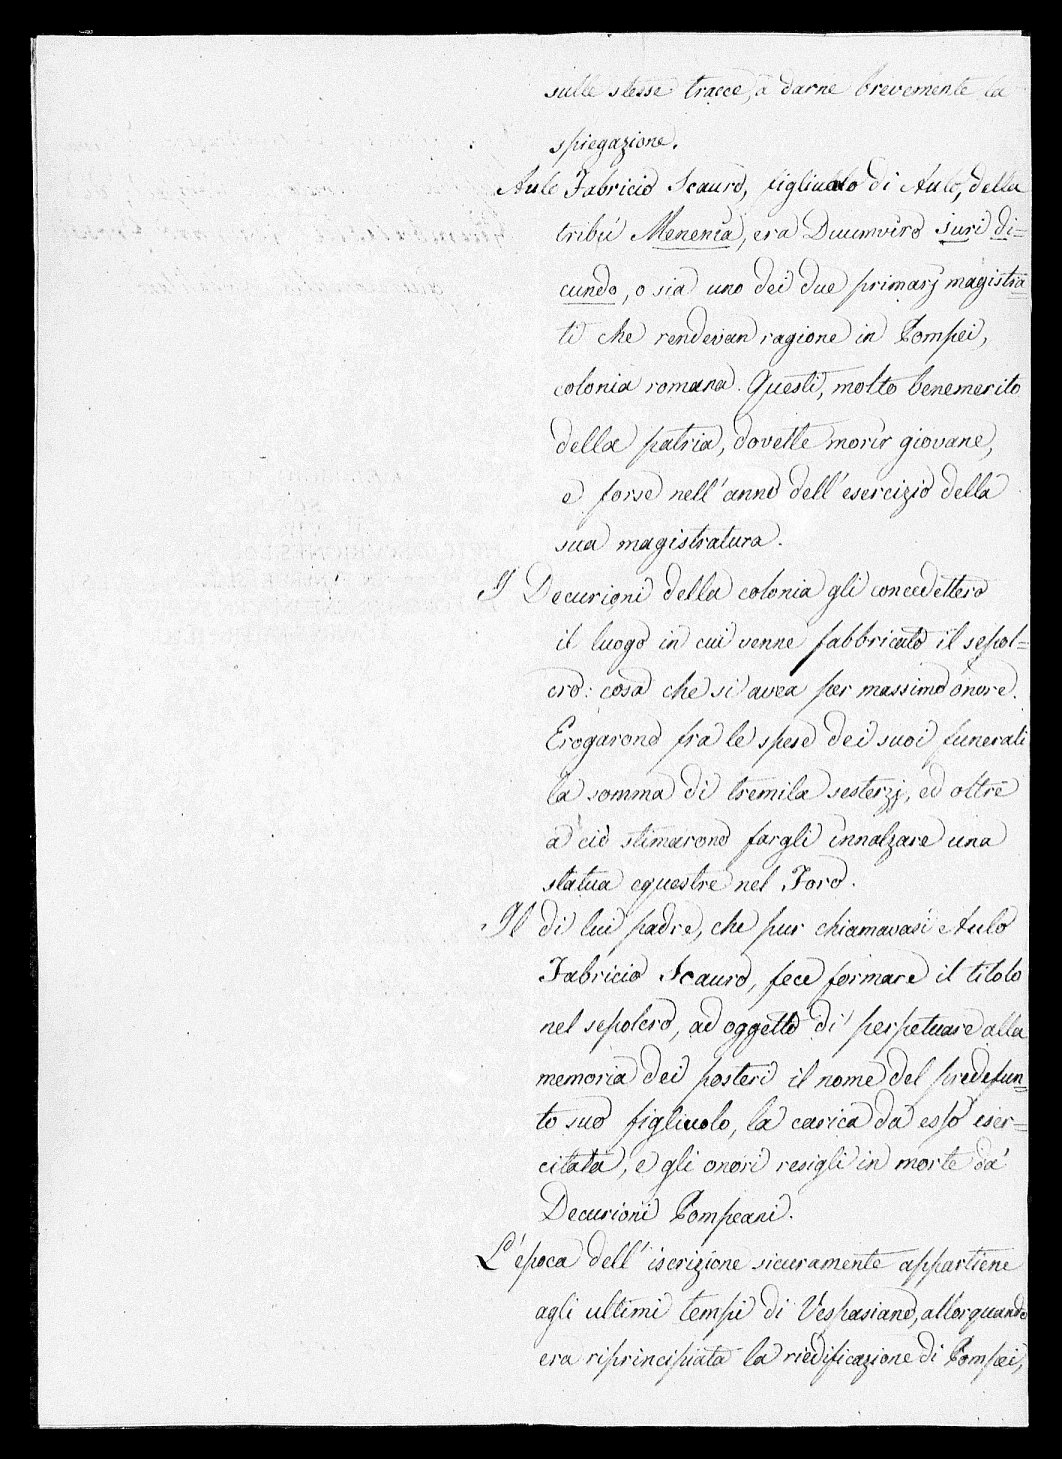 sulle stesse tracce, a darne brevemente la
spiegazione.
Aulo Fabricio Scauro, figliuolo di Aulo, della
tribù Menenia, era Duumviro juri di=
cundo, o sia uno dei due primarj magistra
ti che rendevan ragione in Pompei,
colonia romana. Questi, molto benemerito
della patria, dovette morir giovane,
e forse nell'anno dell'esercizio della
sua magistratura.
I Decurioni della colonia gli concedettero
il luogo in cui venne fabbricato il sepol=
cro: cosa che si avea per massimo onore.
Erogarono fra le spese dei suoi funerali
la somma di tremila sesterzj, ed oltre
a ciò stimarono fargli innalzare una
statua equestre nel Foro.
Il di lui padre, che pur chiamavasi Aulo
Fabricio Scauro, fece formare il titolo
nel sepolcro, ad oggetto di perpetuare alla
memoria dei posteri il nome del predefun=
to suo figliuolo, la carica da esso eser=
citata, e gli onori resigli in morte da'
Decurioni Pompeani.
L'epoca dell'iscrizione sicuramente appartiene
agli ultimi tempi di Vespasiano, allorquando
era riprincipiata la riedificazione di Pompei,